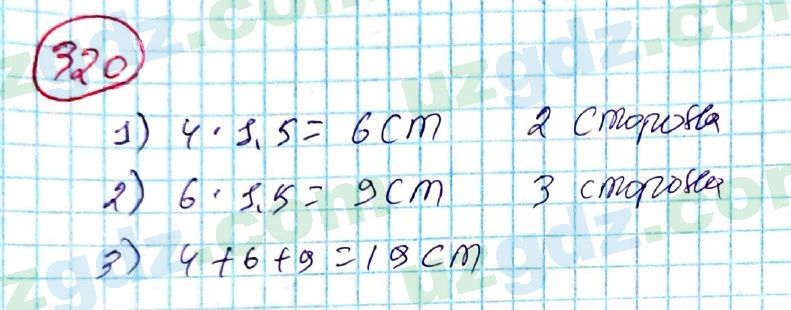 320
1) 4 · 1,5 = 6 см 2 сторона
2) 6 · 1,5 = 9 см 3 сторона
3) 4 + 6 + 9 = 19 см
uzgdz.com